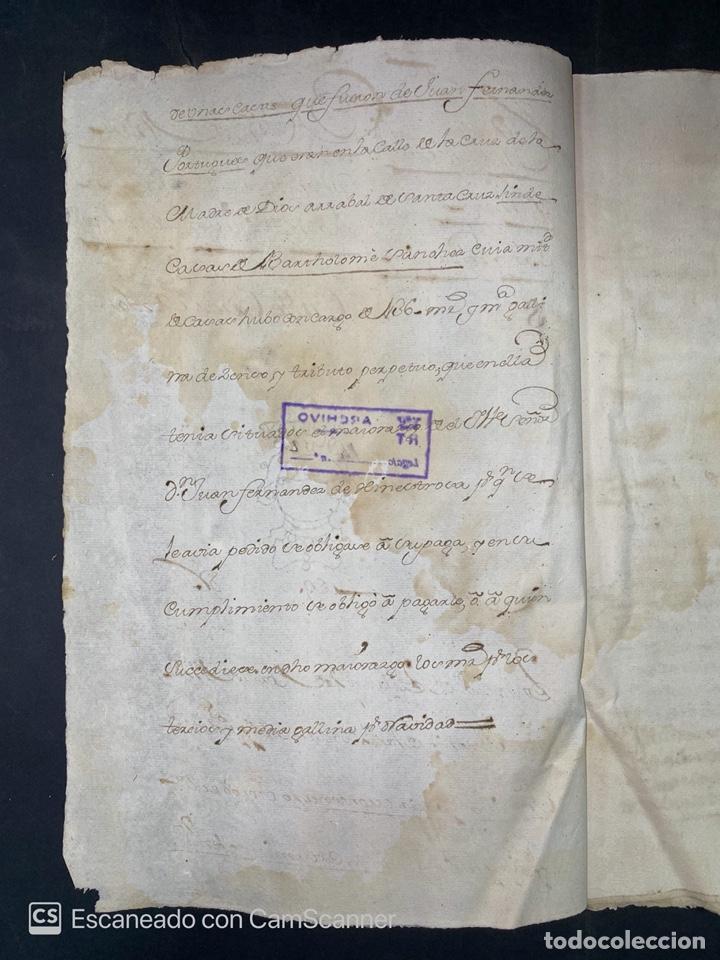 de unas casas que fueron de Juan Fernandez
Portugues que eran en la Calle de la Cruz de la
Madre de Dios arrabal de Santa Cruz linde
Casas de Bartholome Sanchez cuia mitd
de casas hubo con cargo de 186 mrs y ma galli-
na de zenso, y tributo perpetuo, que en ella
tenia situados el maiorazgo de el Señor
Dn Juan fernandez de Hinestrosa pr qn se
le avia pedido se obligase â su paga, y en su
Cumplimiento se obligò â pagarle, ô â quien
succediese en dho maiorazgo los mrs pr los
tercios y media gallina pr Navidad
ARCHIVO
Legajo
nº
CS Escaneado con CamScanner
todocoleccion